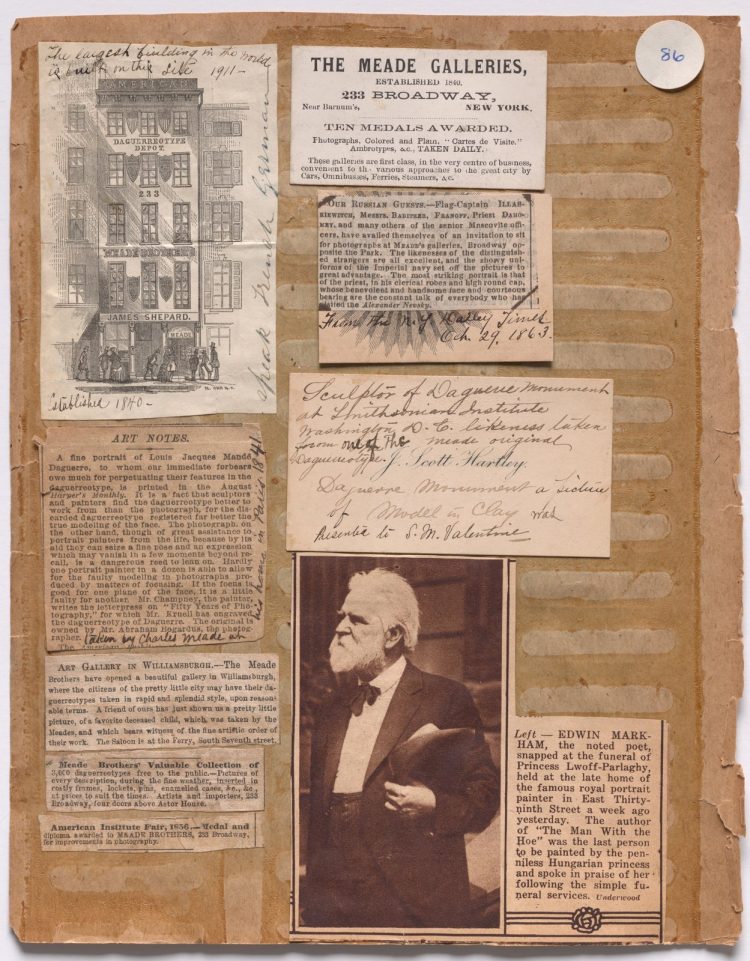 86
The largest building in the world
is built on this site 1911 -
AMERICAN
DAGUERREOTYPE
DEPOT.
233
MEADE BROTHERS
JAMES SHEPARD.
MEADE
speak French German
Established 1840 -
THE MEADE GALLERIES,
ESTABLISHED 1840.
233 BROADWAY,
Near Barnum's, NEW YORK.
TEN MEDALS AWARDED.
Photographs, Colored and Plain, "Cartes de Visite."
Ambrotypes, &c., TAKEN DAILY.
These galleries are first class, in the very centre of business,
convenient to the various approaches to the great city by
Cars, Omnibusses, Ferries, Steamers, &c.
OUR RUSSIAN GUESTS.—Flag-Captain ILLAS-
KIEWITCH, Messrs. BADITKER, FRANOFF, Priest DAHO-
MEY, and many others of the senior Muscovite offi-
cers, have availed themselves of an invitation to sit
for photographs at MEADE'S galleries, Broadway op-
posite the Park. The likenesses of the distinguish-
ed strangers are all excellent, and the showy uni-
forms of the Imperial navy set off the pictures to
great advantage. The most striking portrait is that
of the priest, in his clerical robes and high round cap,
whose benevolent and handsome face and courteous
bearing are the constant talk of everybody who has
visited the Alexander Nevsky.
From the N.Y Dailey Times
Oct. 29, 1863.
Sculptor of Daguerre Monument
at Smithsonian Institute
Washington D. C. likeness taken
from one of the meade original
Daguereotype. J. Scott Hartley.
Daguerre Monument a Picture
of Model in Clay was
Presented to S. M. Valentine
ART NOTES.
A fine portrait of Louis Jacques Mandé
Daguerre, to whom our immediate forbears
owe much for perpetuating their features in the
daguerreotype, is printed in the August
Harper's Monthly. It is a fact that sculptors
and painters find the daguerreotype better to
work from than the photograph, for the dis-
carded daguerreotype registered far better the
true modeling of the face. The photograph, on
the other hand, though of great assistance to
portrait painters from the life, because by its
aid they can seize a fine pose and an expression
which may vanish in a few moments beyond re-
call, is a dangerous reed to lean on. Hardly
one portrait painter in a dozen is able to allow
for the faulty modeling in photographs pro-
duced by matters of focusing. If the focus is
good for one plane of the face, it is a little
faulty for another. Mr. Champney, the painter,
writes the letterpress on "Fifty Years of Pho-
tography," for which Mr. Kruell has engraved
the daguerreotype of Daguerre. The original is
owned by Mr. Abraham Bogardus, the photog-
rapher. taken by Charles Meade at
his home in Paris 1841
ART GALLERY IN WILLIAMSBURGH.—The Meade
Brothers have opened a beautiful gallery in Williamsburgh,
where the citizens of the pretty little city may have their da-
guerreotypes taken in rapid and splendid style, upon reason-
able terms. A friend of ours has just shown us a pretty little
picture, of a favorite deceased child, which was taken by the
Meades, and which bears witness of the fine artistic order of
their work. The Saloon is at the Ferry, South Seventh street.
Meade Brothers' Valuable Collection of
3,000 daguerreotypes free to the public.—Pictures of
every description, during the fine weather, inserted in
costly frames, lockets, pins, enamelled cases, &c., &c.,
at prices to suit the times. Artists and importers, 233
Broadway, four doors above Astor House.
American Institute Fair, 1856.—Medal and
diploma awarded to MEADE BROTHERS, 233 Broadway,
for improvements in photography.
Left — EDWIN MARK-
HAM, the noted poet,
snapped at the funeral of
Princess Lwoff-Parlaghy,
held at the late home of
the famous royal portrait
painter in East Thirty-
ninth Street a week ago
yesterday. The author
of "The Man With the
Hoe" was the last person
to be painted by the pen-
niless Hungarian princess
and spoke in praise of her
following the simple fu-
neral services. Underwood